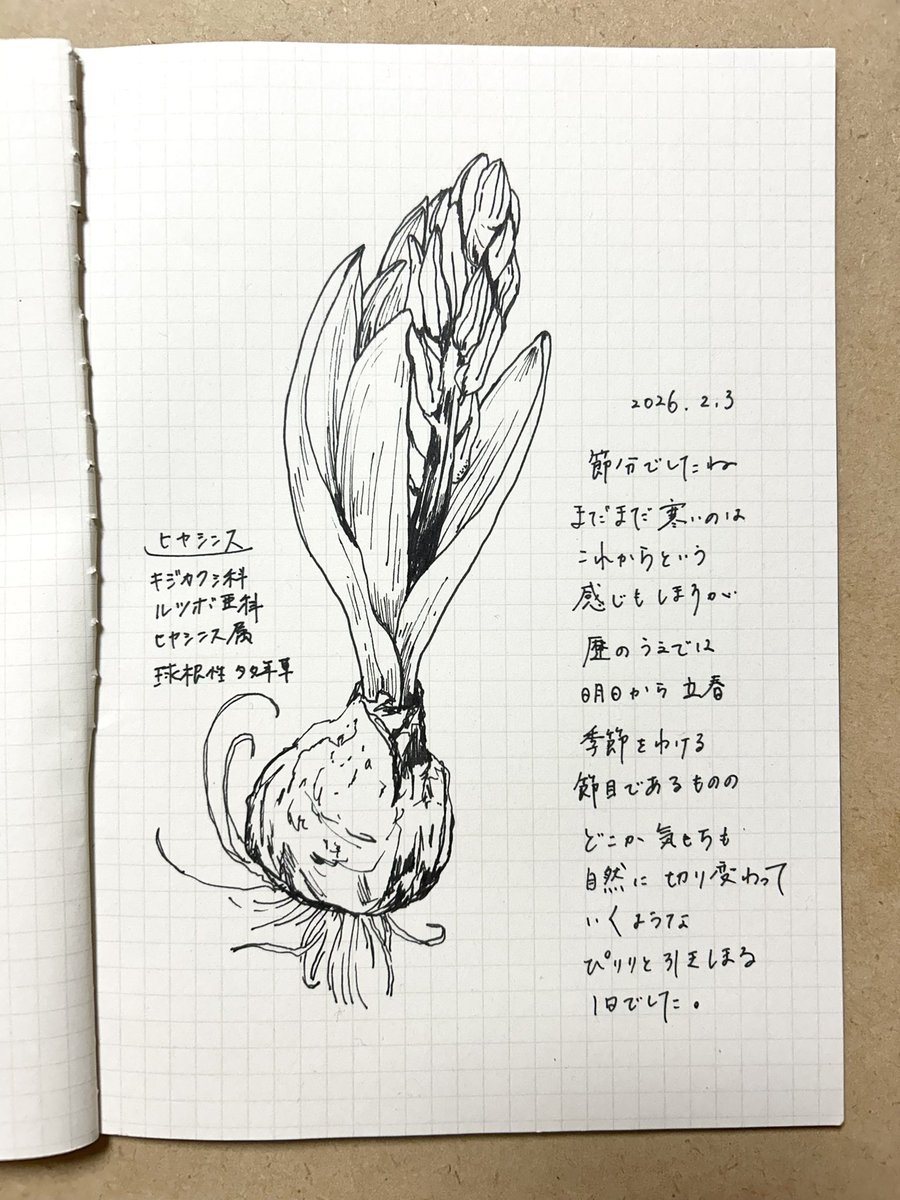 ヒヤシンス
キジカクシ科
ルツボ亜科
ヒヤシンス属
球根性多年草
2026.2.3
節分でしたね
まだまだ寒いのは
これからという
感じもしますが
暦のうえでは
明日から立春
季節をわける
節目であるものの
どこか気もちも
自然に切り変わって
いくような
ぴりりと引きしまる
1日でした。